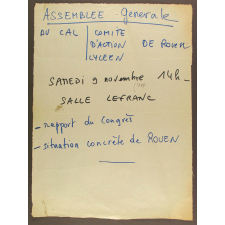 ASSEMBLEE generale
DU CAL | COMITE
D'ACTION DE ROUEN
LYCEEN
SAMEDI 9 novembre 14h -
SALLE LEFRANC
- rapport du Congrès
- situation concrète de ROUEN